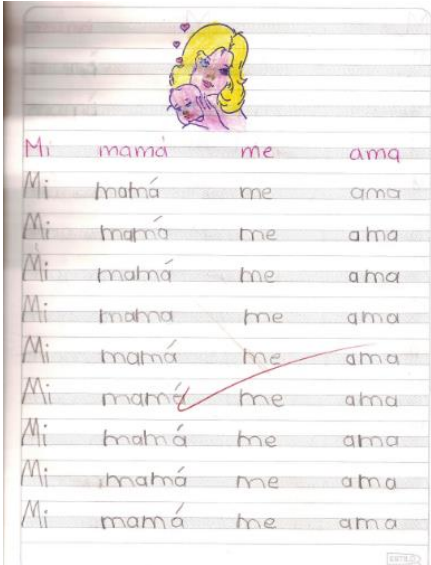 Mi mamá me ama
Mi mamá me ama
Mi mamá me ama
Mi mamá me ama
Mi mama me ama
Mi mamá me ama
Mi mamá me ama
Mi mamá me ama
Mi mamá me ama
Mi mamá me ama
ESTILO